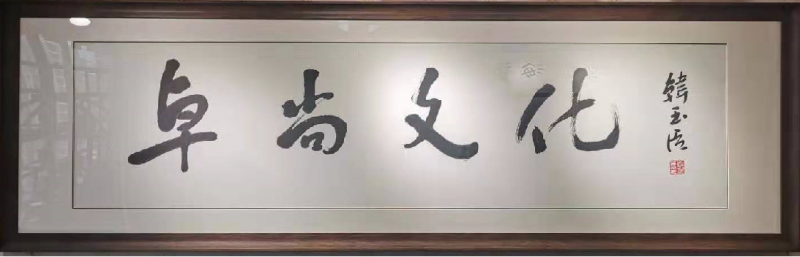 卓尚文化
韩玉臣